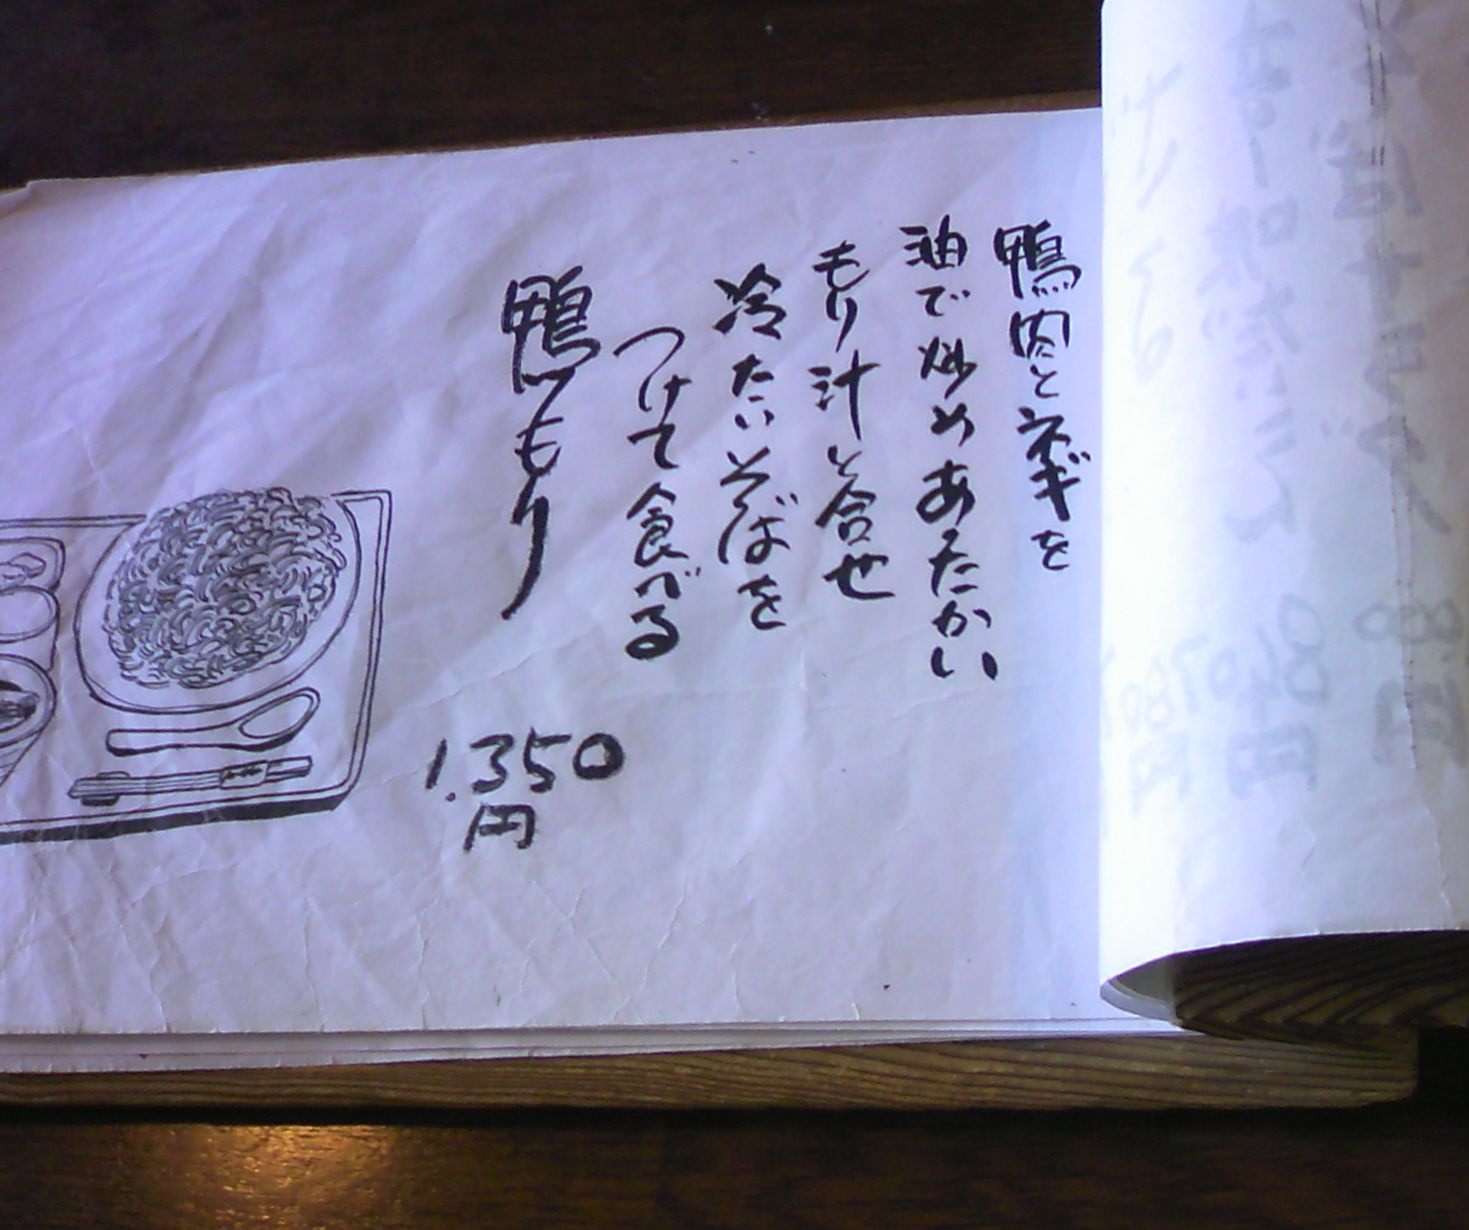 鴨肉とネギを
油で炒めあたたかい
もり汁と合せ
冷たいそばを
つけて食べる
鴨もり
1.350
円